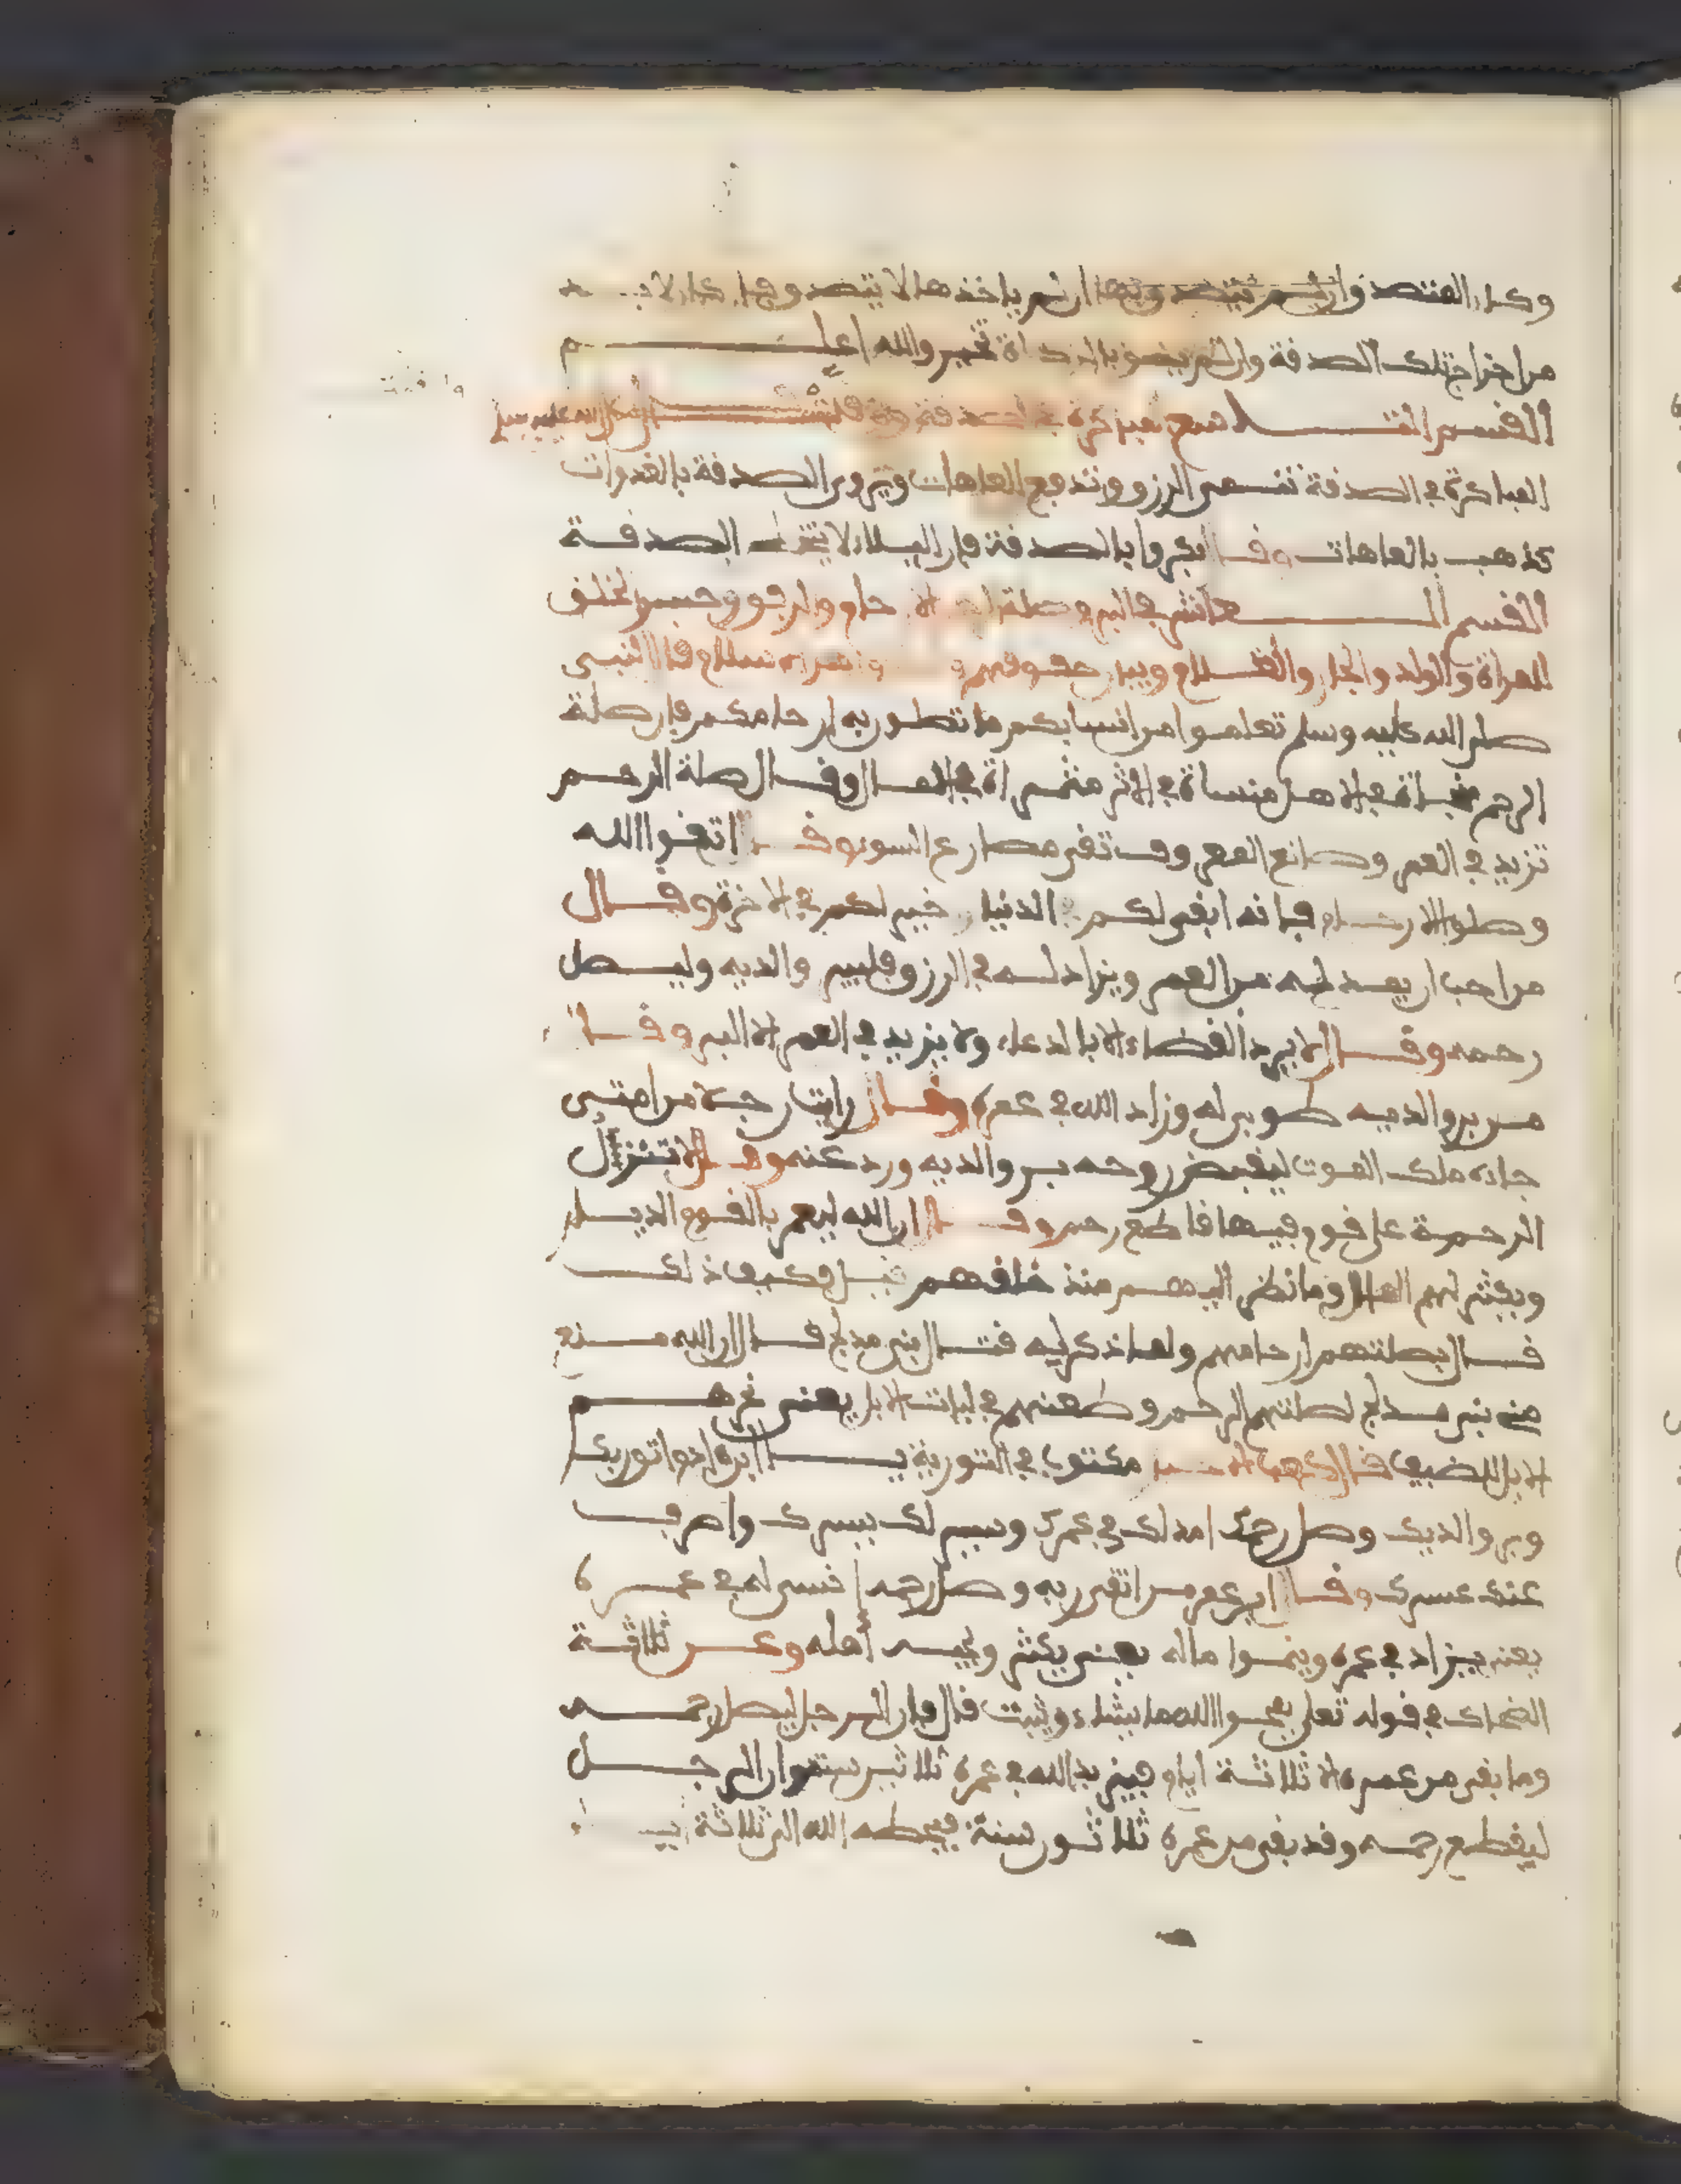 وكان المتصدق وان لم يتصدق بها ان لم ياخذها لا يتصدق بها كان لا بد
من اخراج تلك الصدقة والله اعلم
القسم التاسع في الصدقة
المباكرة في الصدقة تنمي الرزق وتدفع العاهات وتروى الصدقة بالغدوات
تذهب بالعاهات وقال بكروا بالصدقة فان البلاء لا يتخطى الصدقة
القسم العاشر في البر وصلة الارحام والرفق وحسن الخلق
للمراة والولد والجار والغلام وبيان حقوقهم قال النبي
صلى الله عليه وسلم تعلموا من انسابكم ما تصلون به ارحامكم فان صلة
الرحم محبة في الاهل منساة في الاثر مثراة في المال وقال صلة الرحم
تزيد في العمر وصانع المعروف تقي مصارع السوء وقال اتقوا الله
وصلوا الارحام فانه ابقى لكم في الدنيا وخير لكم في الاخرة وقال
من احب ان يمد له من العمر ويزاد له في الرزق فليبر والديه وليصل
رحمه وقال لا يرد القضاء الا بالدعاء ولا يزيد في العمر الا البر وقال
من بر والديه طوبى له وزاد الله في عمره وقال رايت رجلا من امتي
جاءه ملك الموت ليقبض روحه بر والديه ورد عنه وقال لا تتنزل
الرحمة على قوم فيها قاطع رحم وقال ان الله ليعمر بالقوم الديار
ويكثر لهم المال وما نظر اليهم منذ خلقهم قيل وكيف ذلك
قال بصلتهم ارحامهم ولما ذكر له قتال بني مدلج قال ان الله منع
من بني مدلج لصلتهم الرحم وطعنهم في لبات الابل يعني نحرهم
الابل للضيف قال كعب الاحبار مكتوب في التورية يا ابن ادم اتق ربك
وبر والديك وصل رحمك امد لك في عمرك ويسر لك يسرك واصرف
عنك عسرك وقال ابن عمر من اتقى ربه وصل رحمه انسى له في عمره
يعني يزاد في عمره وينموا ماله يعني يكثر ويحبه اهله وعن ثلاثة
الضحاك في قوله تعلى يمحوا الله ما يشاء ويثبت قال فان الرجل ليصل رحمه
وما بقي من عمره الا ثلاثة ايام فيزيد الله في عمره ثلاثين سنة وان الرجل
ليقطع رحمه وقد بقي من عمره ثلاثون سنة فيحطه الله الى ثلاثة ايام